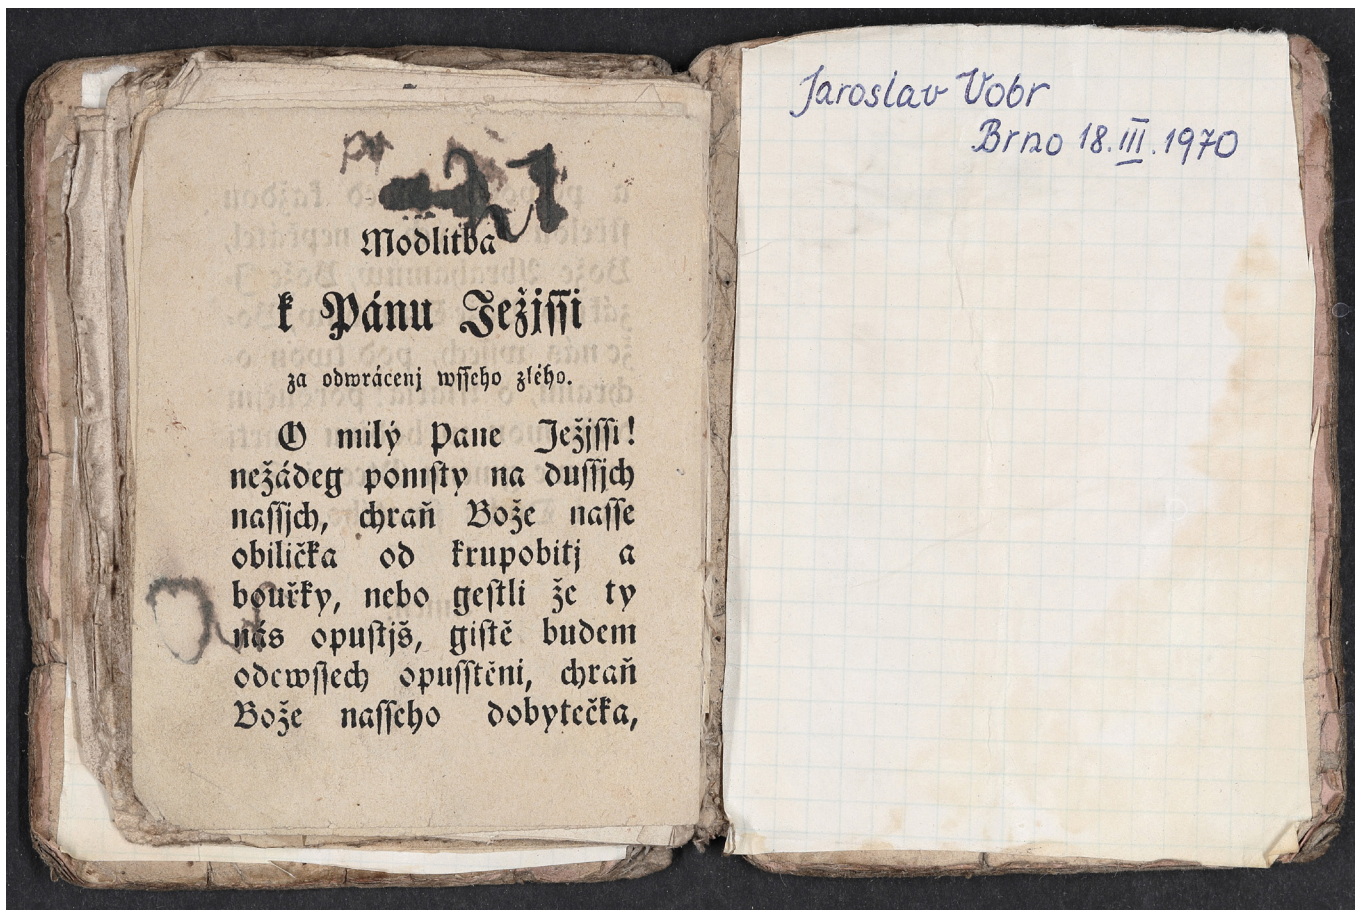 Modlitba
k Pánu Ježjſſi
za odwrácenj wſſeho zlého.
O milý Pane Ježjſſi!
nežádeg pomſty na duſſjch
naſſjch, chraň Bože naſſe
obilička od krupobitj a
bouřky, nebo geſtli že ty
nás opuſtjš, giſtě budem
odewſſech opuſſtěni, chraň
Bože naſſeho dobytečka,
Jaroslav Vobr
Brno 18.III.1970